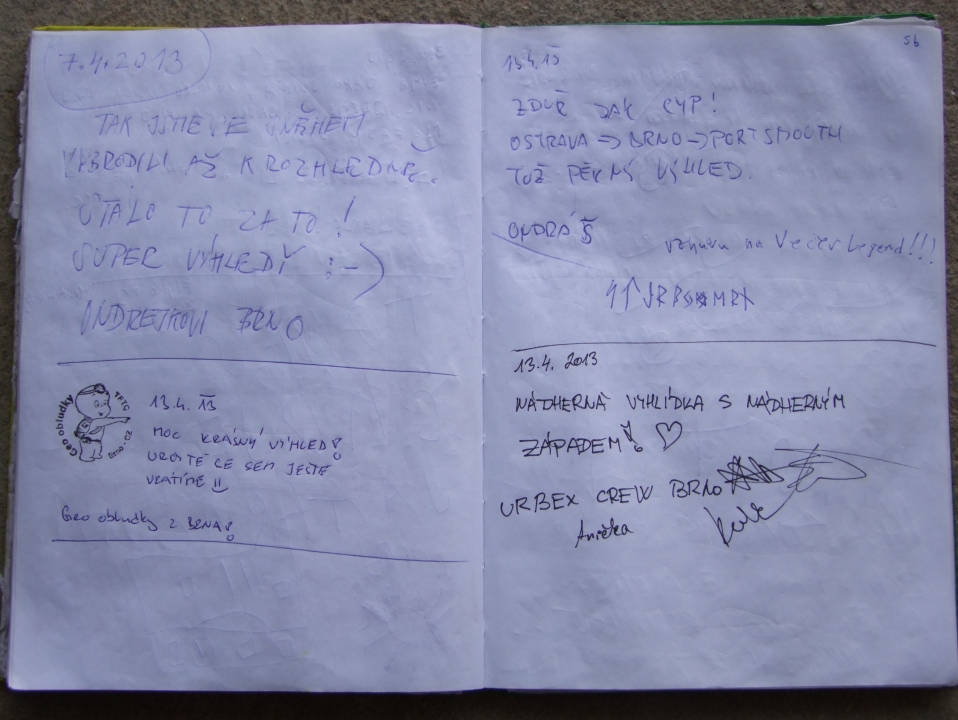 7.4.2013
TAK JSME SE SNĚHEM
VYBRODILI AŽ K ROZHLEDNĚ.
STÁLO TO ZA TO!
SUPER VÝHLEDY :-)
BRNO
Geo obludky TFTC
13.4. 13
MOC KRÁSNÝ VÝHLED!
URČITĚ SE SEM JEŠTĚ
VRÁTÍME !!
Geo obludky z BRNA!
56
13.4. 13
ZDUŘ JAK CYP!
OSTRAVA -> BRNO -> PORTSMOUTH
TOŽ PĚKNÝ VÝHLED.
ONDRÁŠ
vzhůru na Večer Legend!!!
13.4. 2013
NÁDHERNÁ VYHLÍDKA S NÁDHERNÝM
ZÁPADEM! ♡
URBEX CREW BRNO
Anička